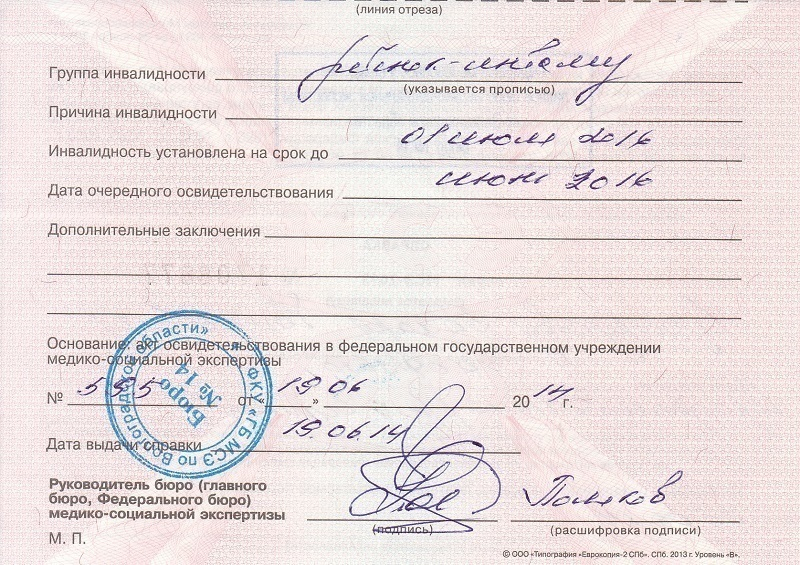 (линия отреза)
Группа инвалидности ребенок-инвалид
(указывается прописью)
Причина инвалидности
Инвалидность установлена на срок до 01 июля 2016
Дата очередного освидетельствования июнь 2016
Дополнительные заключения
Основание: акт освидетельствования в федеральном государственном учреждении
медико-социальной экспертизы
№ 595 от «19» 06 2014 г.
Дата выдачи справки 19.06.14
Руководитель бюро (главного
бюро, Федерального бюро)
медико-социальной экспертизы
(подпись) (расшифровка подписи)
М. П.
© ООО «Типография «Еврокопия-2 СПб». СПб. 2013 г. Уровень «В».
ФКУ «ГБ МСЭ по Волгоградской области»
Бюро
№ 14